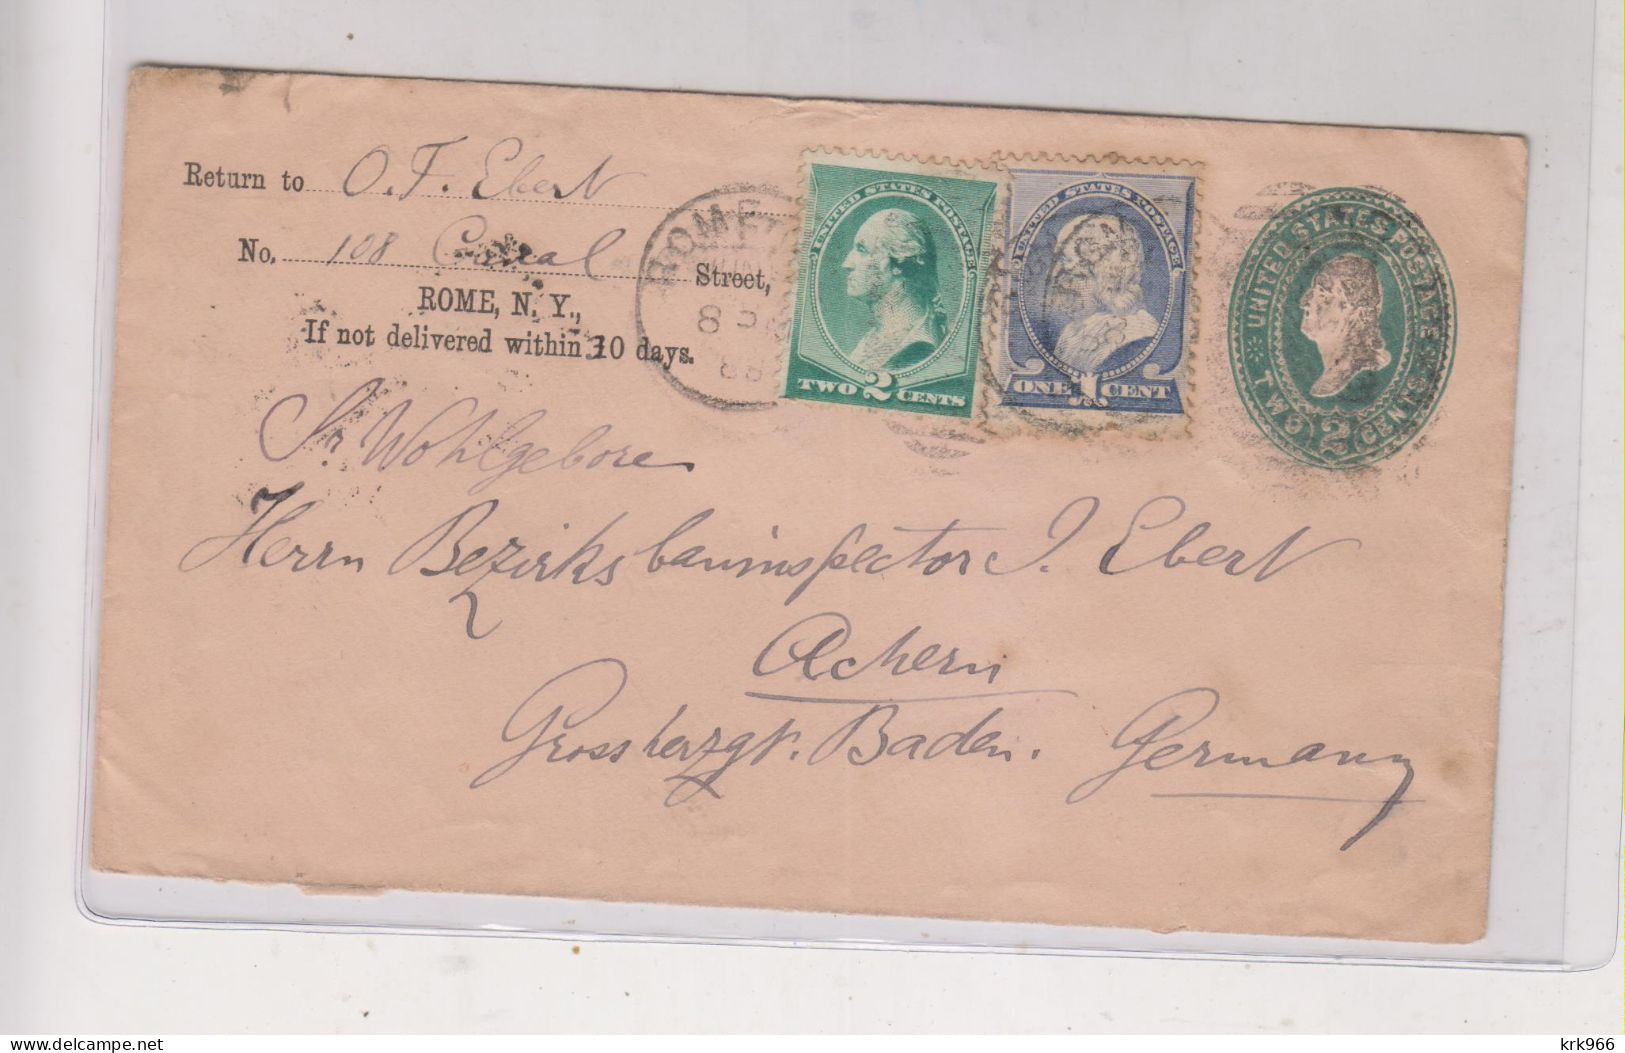 Return to O. F. Ebert
No. 108 Canal Street,
ROME, N. Y.,
If not delivered within 30 days.
ROME
8
88
UNITED STATES POSTAGE
TWO 2 CENTS
UNITED STATES POSTAGE
ONE 1 CENT
UNITED STATES POSTAGE
TWO 2 CENTS
Sr. Wohlgebore
Herrn Bezirksbauinspector J. Ebert
Achern
Grossherzgt. Baden. Germany
delcampe.net
krk966